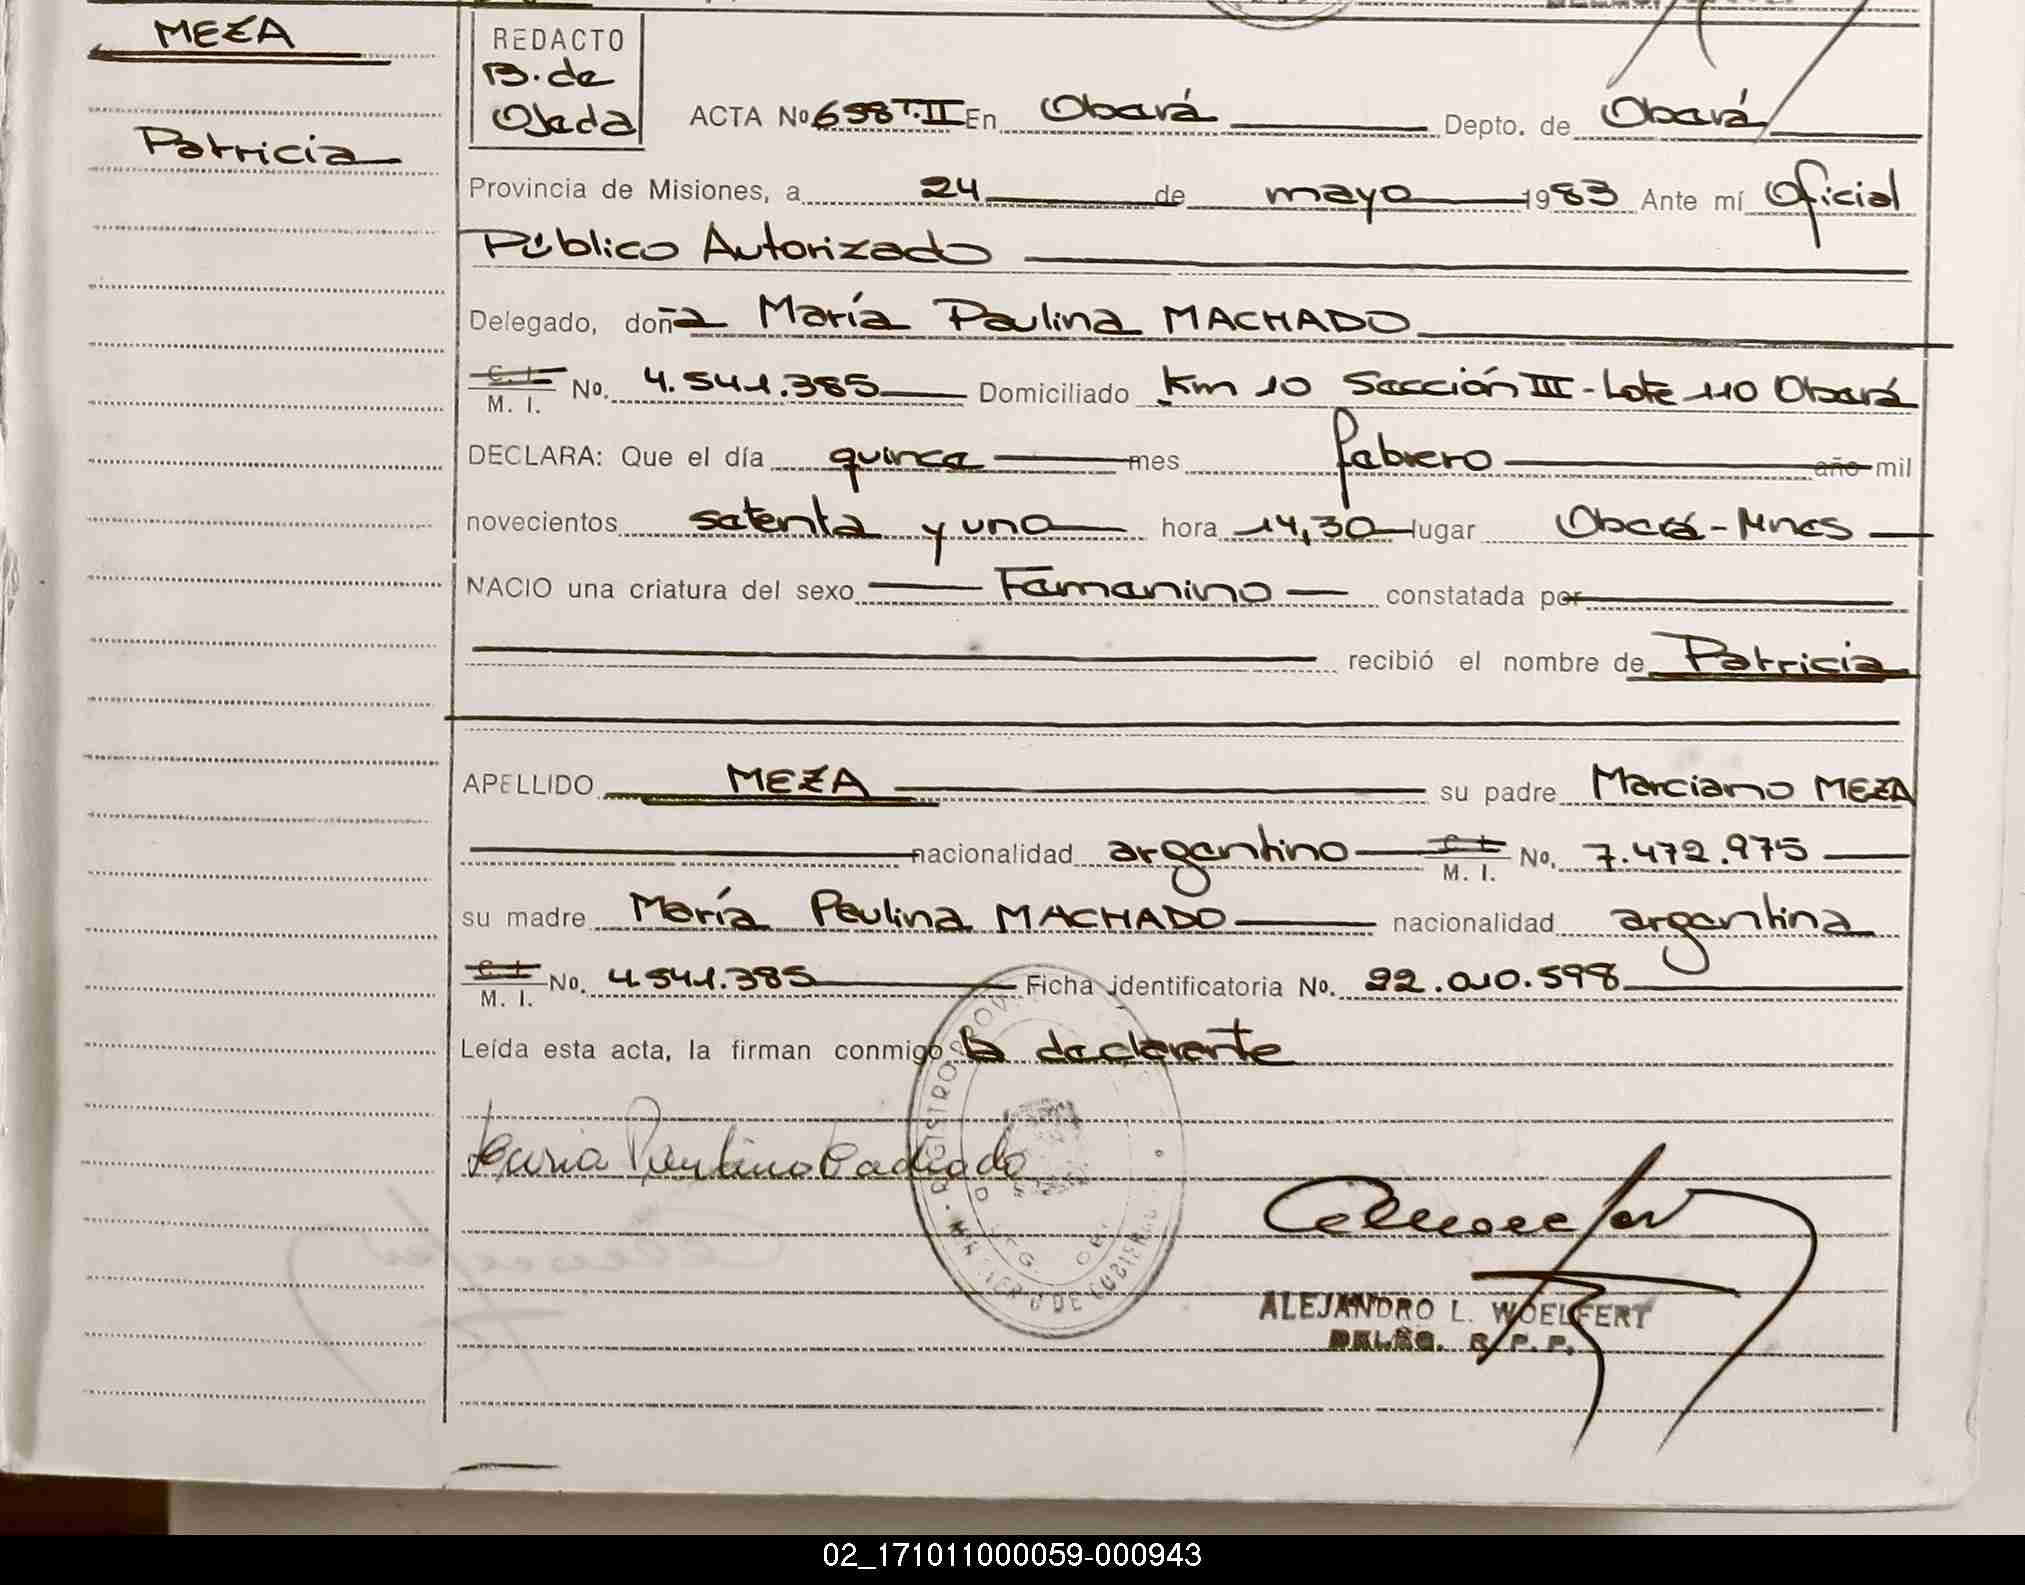 MEZA
Patricia
REDACTO
B. de
Ojeda
ACTA No 698 T. II En Oberá Depto. de Oberá
Provincia de Misiones, a 24 de mayo 1983 Ante mí Oficial
Público Autorizado
Delegado, doña María Paulina MACHADO
C. I. M. I. No. 4.541.385 Domiciliado Km 10 Sección III - Lote 110 Oberá
DECLARA: Que el día quince mes febrero año mil
novecientos setenta y uno hora 14,30 lugar Oberá - Mnes
NACIO una criatura del sexo Femenino constatada por
recibió el nombre de Patricia
APELLIDO MEZA su padre Marciano MEZA
nacionalidad argentino C. I. M. I. No. 7.472.975
su madre María Paulina MACHADO nacionalidad argentina
C. I. M. I. No. 4.541.385 Ficha identificatoria No. 22.010.598
Leída esta acta, la firman conmigo la declarente
Maria Paulina Machado
ALEJANDRO L. WOELFERT
DELEG. R. P. P.
02_171011000059-000943